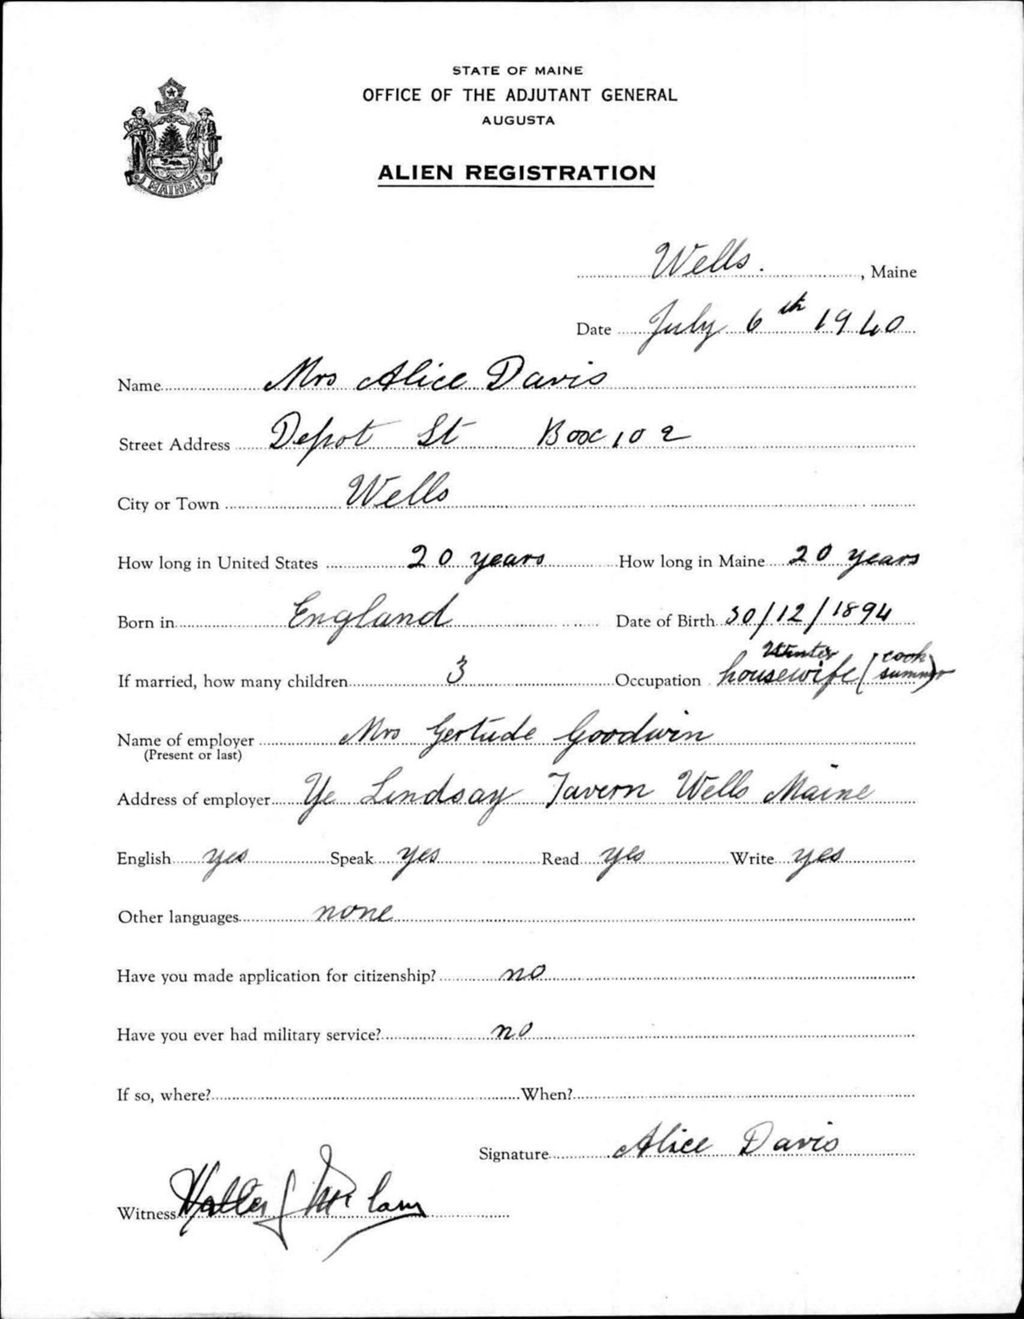 STATE OF MAINE
OFFICE OF THE ADJUTANT GENERAL
AUGUSTA
ALIEN REGISTRATION
MAINE
Wells. , Maine
Date July 6th 1940
Name Mrs Alice Davis
Street Address Depot St Box 102
City or Town Wells
How long in United States 20 years How long in Maine 20 years
Born in England Date of Birth 30/12/1894
If married, how many children 3 Occupation housewife Winter (cook summer)
Name of employer Mrs Gertude Goodwin
(Present or last)
Address of employer Ye Lindsay Tavern Wells Maine
English yes Speak yes Read yes Write yes
Other languages none
Have you made application for citizenship? no
Have you ever had military service? no
If so, where? When?
Signature Alice Davis
Witness Walter J